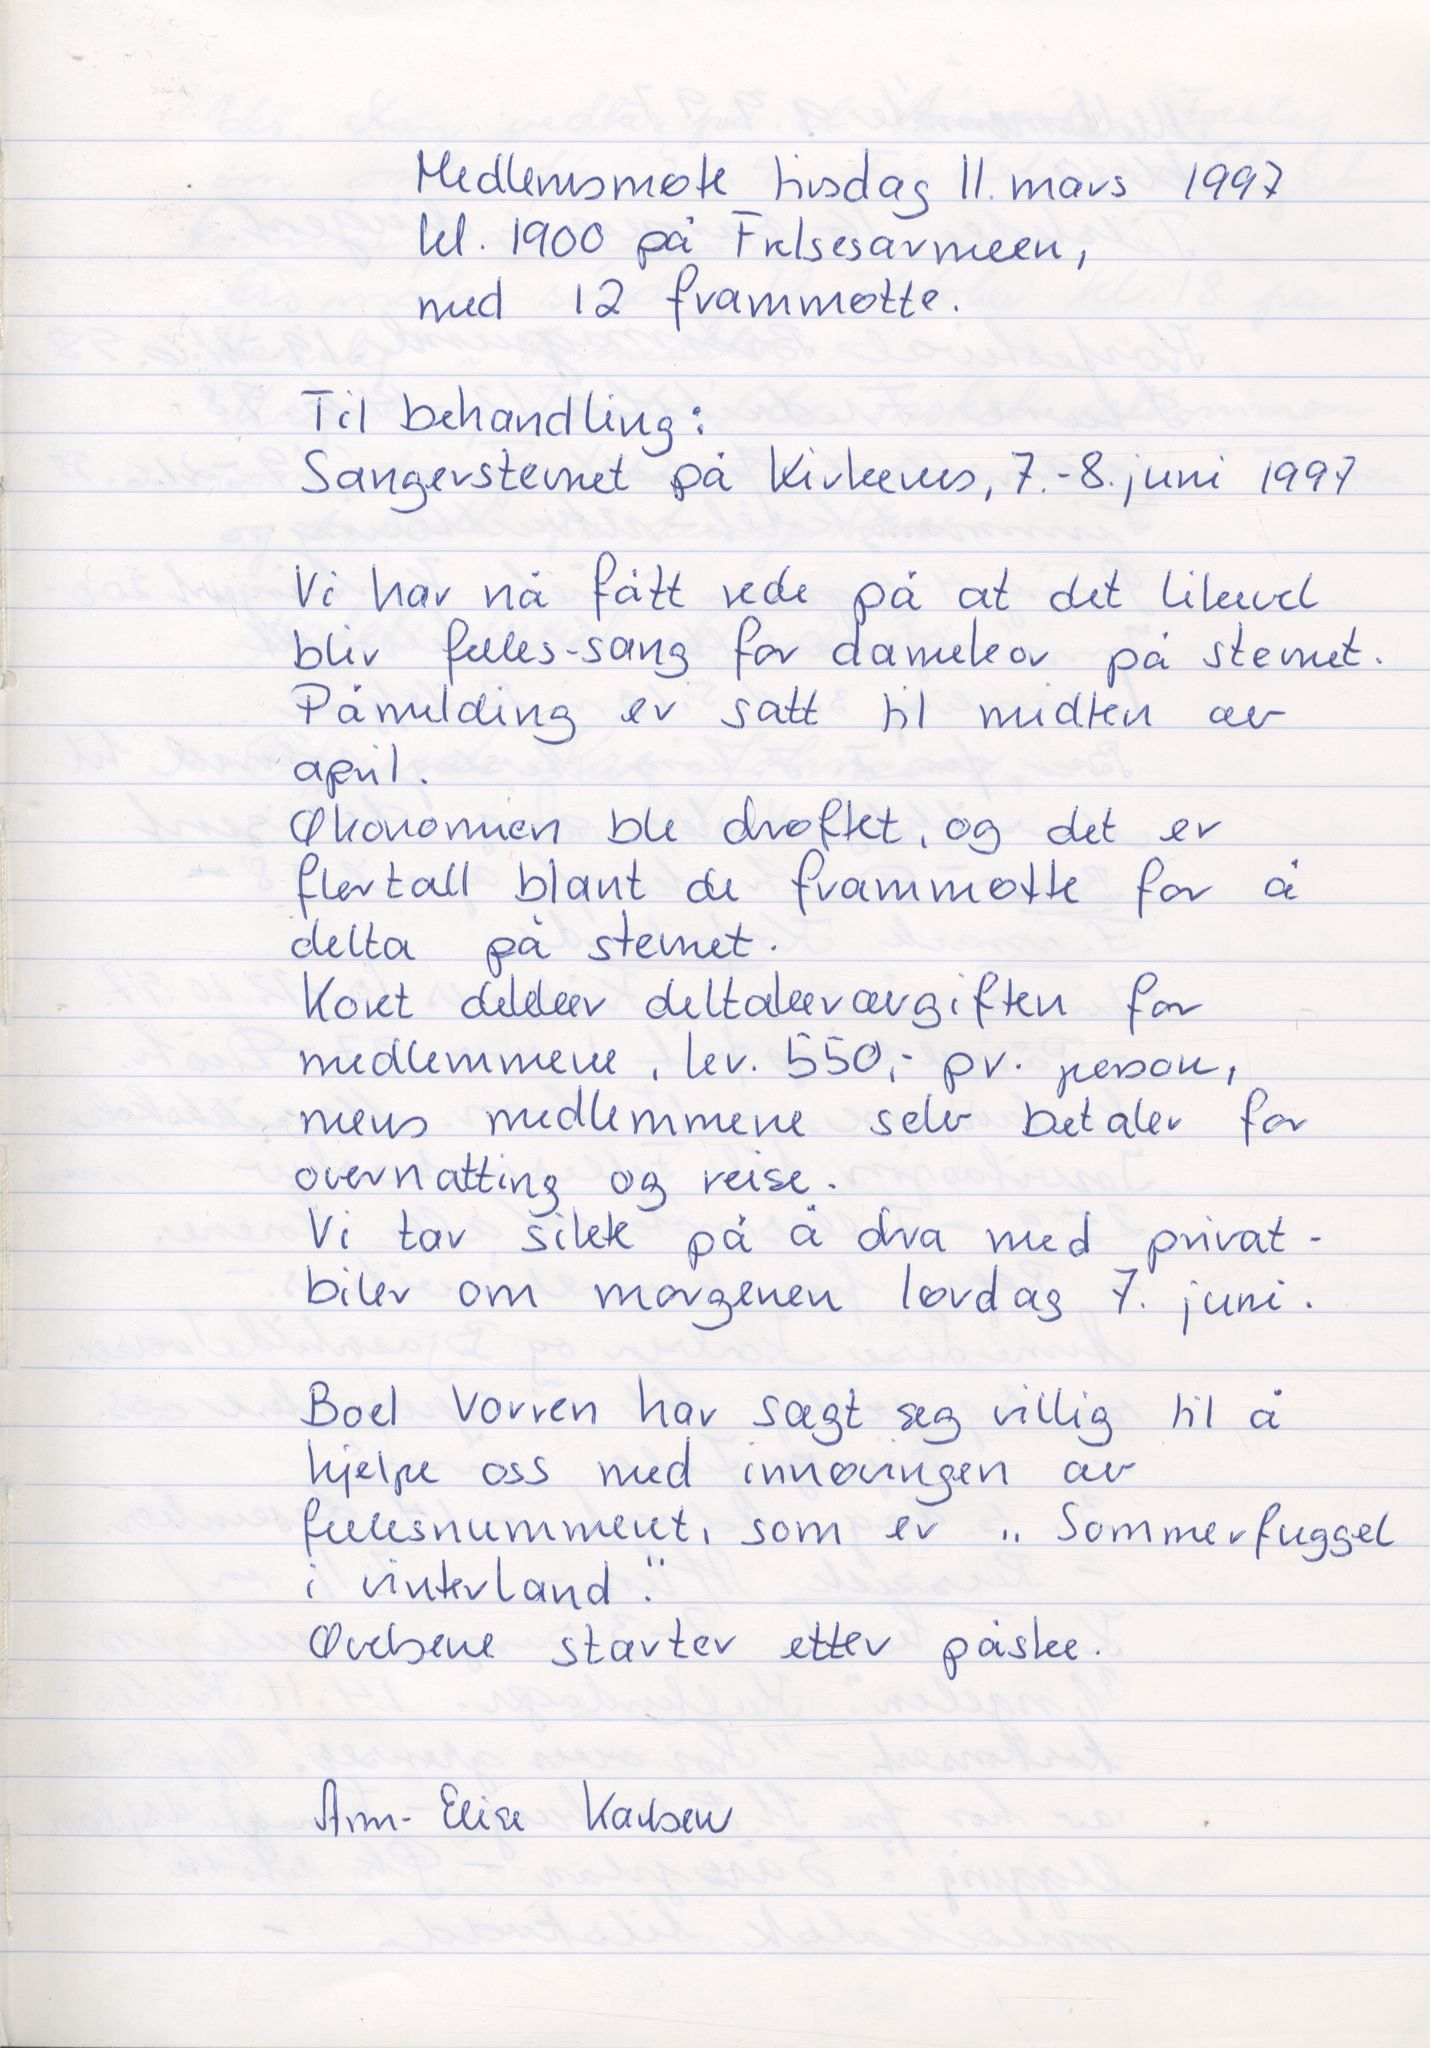 Medlemsmøte tirsdag 11. mars 1997
kl. 1900 på Frelsesarmeen,
med 12 frammøtte.
Til behandling:
Sangerstevnet på Kirkenes, 7.-8. juni 1997
Vi har nå fått rede på at det likevel
blir felles-sang for damekor på stevnet.
Påmelding er satt til midten av
april.
Økonomien ble drøftet, og det er
flertall blant de frammøtte for å
delta på stevnet.
Koret dekker deltakeravgiften for
medlemmene, kr. 550,- pr. person,
mens medlemmene selv betaler for
overnatting og reise.
Vi tar sikte på å dra med privat-
biler om morgenen lørdag 7. juni.
Boel Vorren har sagt seg villig til å
hjelpe oss med innøvingen av
fellesnummeret, som er „Sommerfuggel
i vinterland."
Øvelsene starter etter påske.
Ann-Elise Karlsen